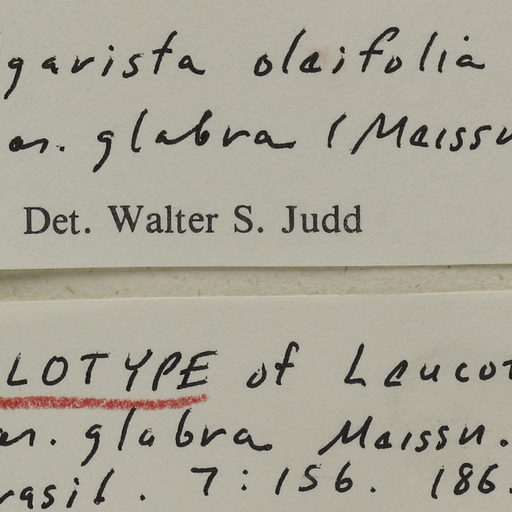 garista oleifolia
ar. glabra (Meissn
Det. Walter S. Judd
LOTYPE of Leucot
ar. glabra Meissn.
rasil. 7:156. 186